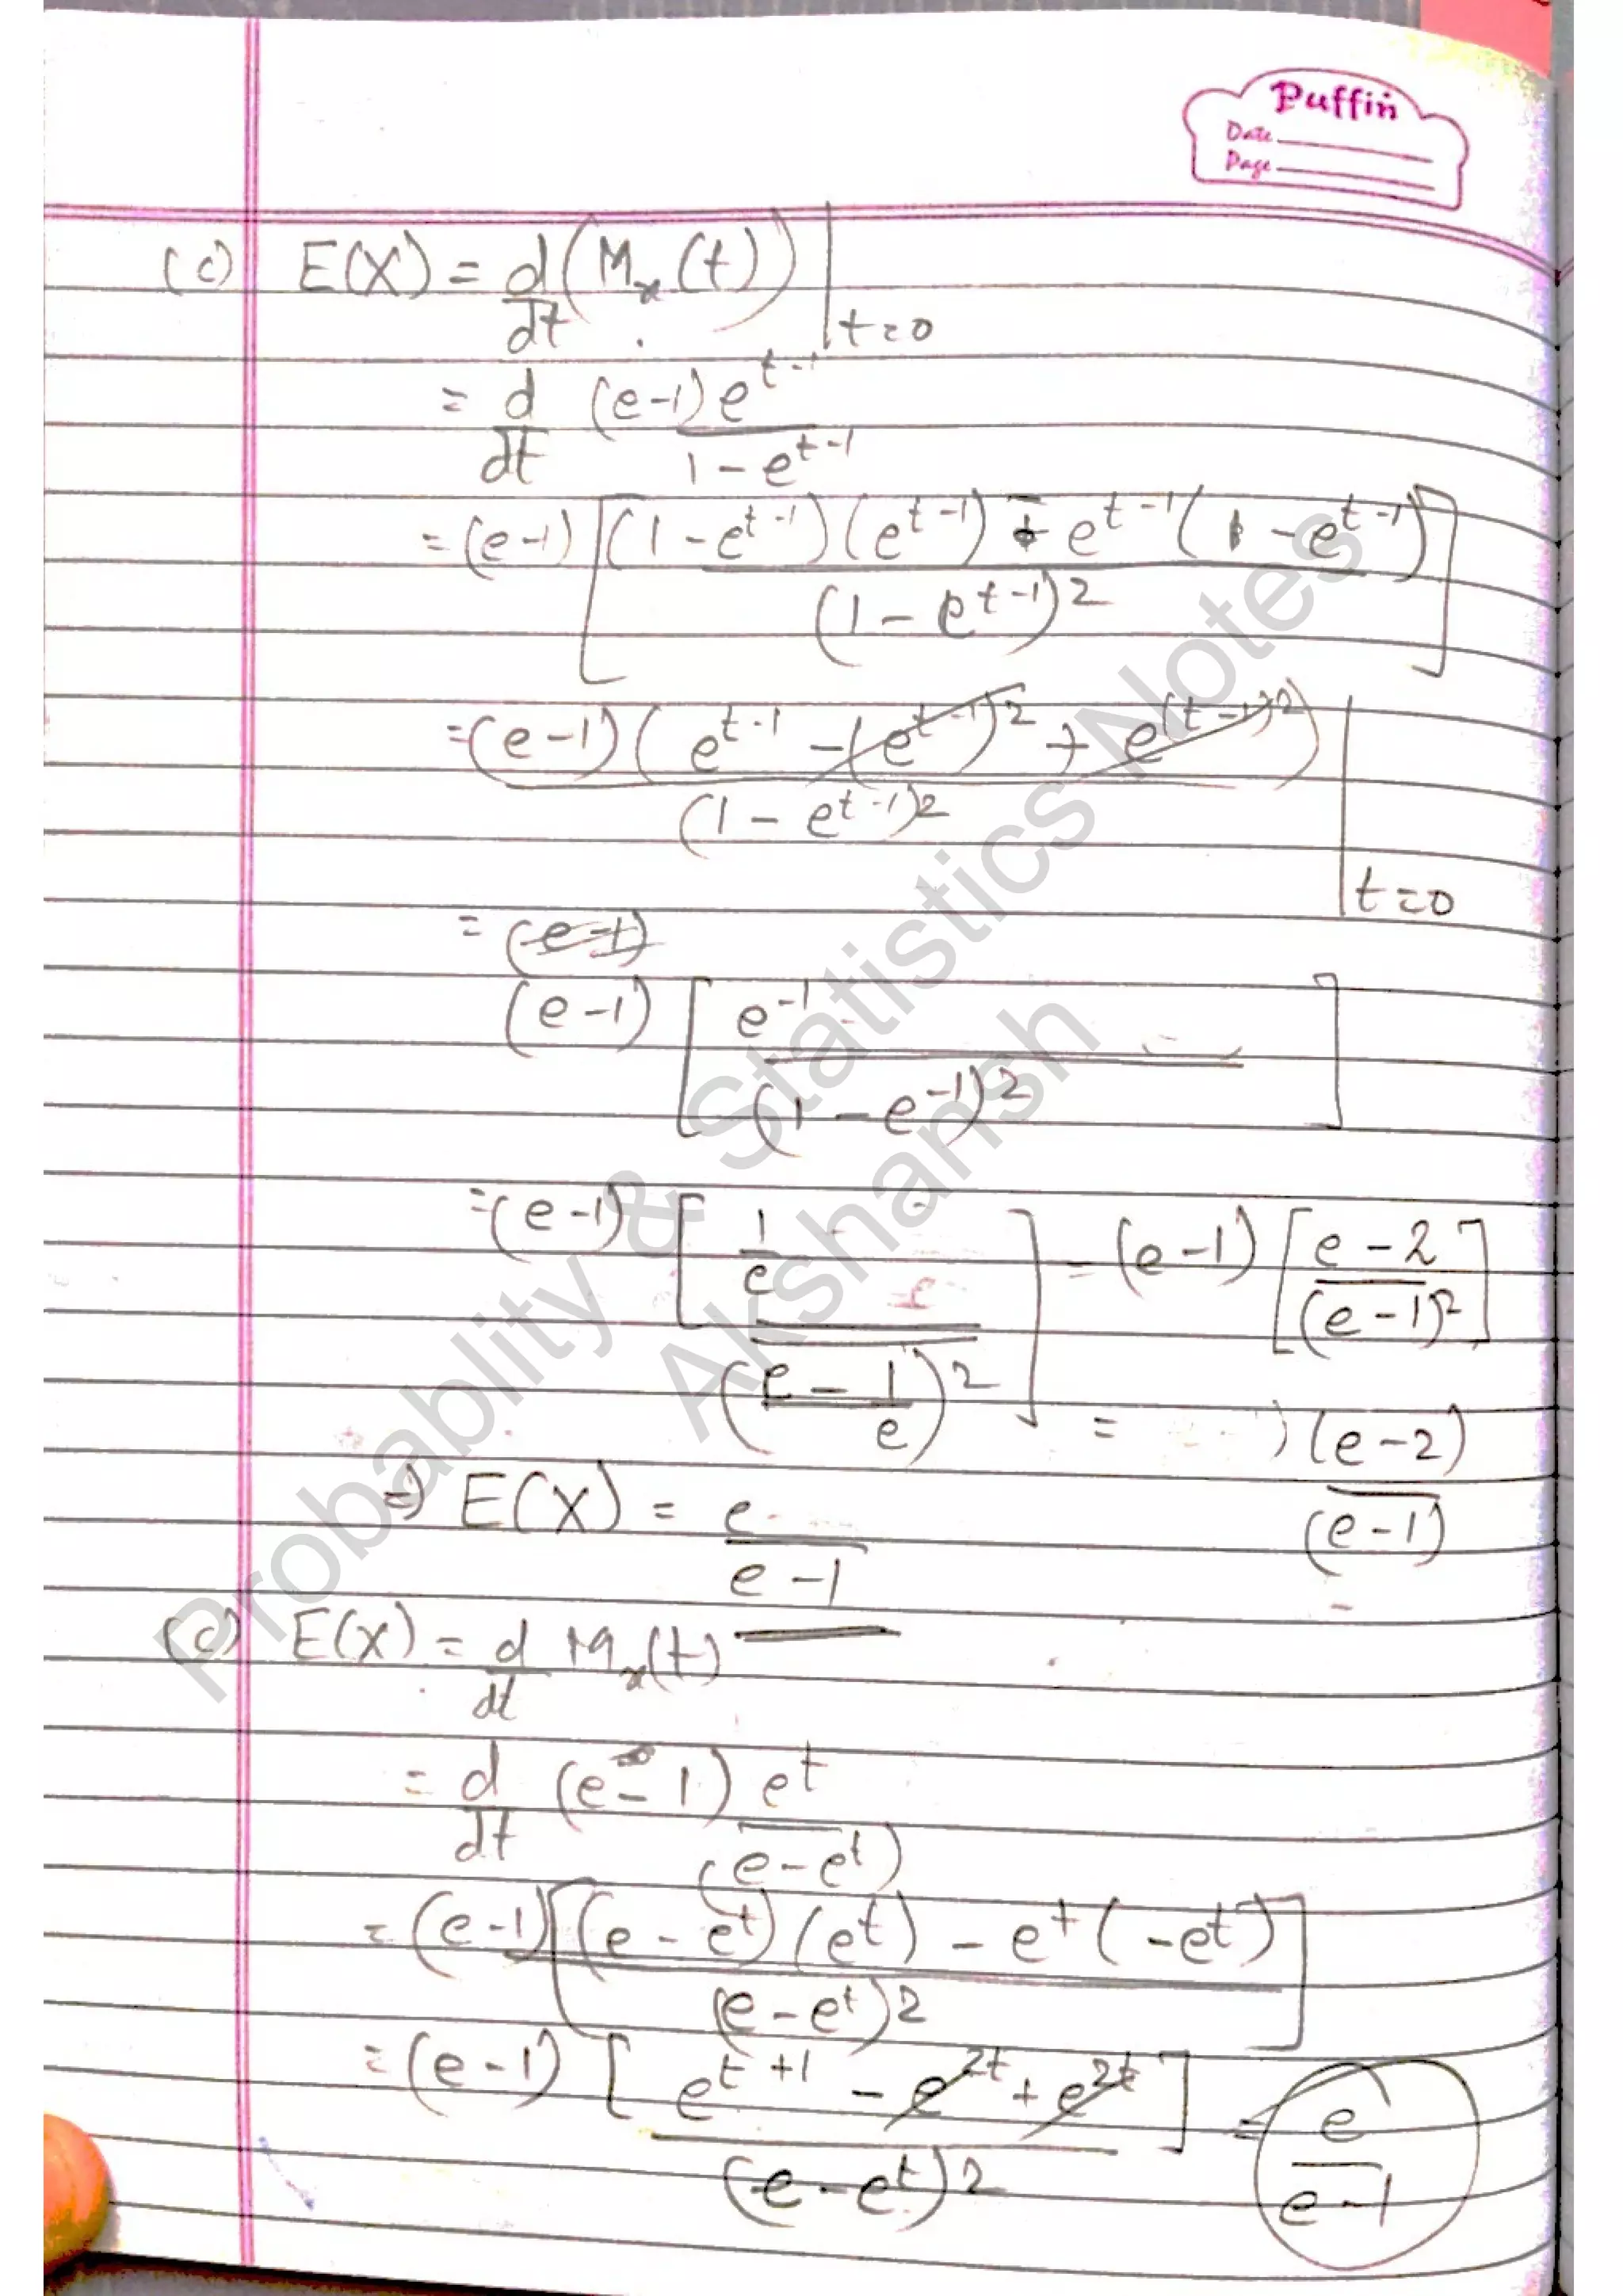 Puffin
Date
Page
(c) E(X) = d/dt (Mx(t)) | t=0
= d/dt (e-1) e^(t-1) / (1 - e^(t-1))
= (e-1) [ (1 - e^(t-1)) (e^(t-1)) - e^(t-1) (1 - e^(t-1)) / (1 - e^(t-1))^2 ]
= (e-1) ( e^(t-1) - (e^(t-1))^2 + e^((t-1)2) ) / (1 - e^(t-1))^2 | t=0
= (e-1)
(e-1) [ e^-1 / (1 - e^-1)^2 ]
= (e-1) [ 1/e / ((e-1)/e)^2 ] = (e-1) [ e-2 / (e-1)^2 ]
= (e-2) / (e-1)
⇒ E(X) = e / (e-1)
(c) E(X) = d/dt Mx(t)
= d/dt (e-1) e^t / (e - e^t)
= (e-1) [ (e - e^t) (e^t) - e^t (-e^t) / (e - e^t)^2 ]
= (e-1) [ e^(t+1) - e^2t + e^2t ] / (e - e^t)^2 = e / (e-1)
Probablity & Statistics Notes
Akshansh